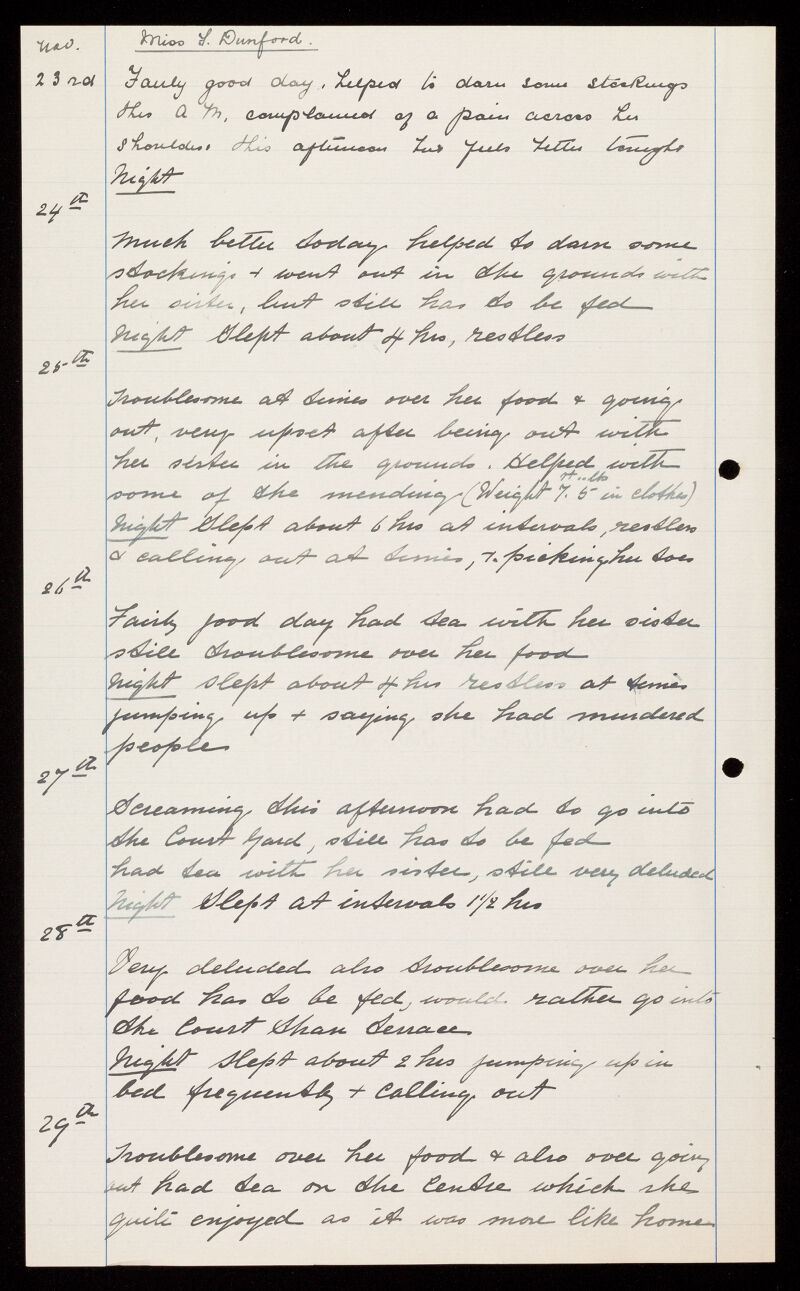 Nov. Miss F. Dunford.
23rd Fairly good day, helped to darn some stockings
this A M, complained of a pain across her
shoulders this afternoon but feels better tonight
Night
24th
Much better today helped to darn some
stockings + went out in the grounds with
her sister, but still has to be fed
Night Slept about 4 hrs, restless
25th
Troublesome at times over her food & going
out, very upset after being out with
her sister in the grounds. Helped with
some of the mending (Weight 7st. 5lbs in clothes)
Night Slept about 6 hrs at intervals, restless
& calling out at times, + picking her toes
26th
Fairly good day had tea with her sister
still troublesome over her food
Night slept about 4 hrs restless at times
jumping up + saying she had murdered
people
27th
Screaming this afternoon had to go into
the Court Yard, still has to be fed
had tea with her sister, still very deluded
Night Slept at intervals 1 1/2 hrs
28th
Very deluded also troublesome over her
food has to be fed, would rather go into
the Court than terrace
Night Slept about 2 hrs jumping up in
bed frequently + calling out
29th
Troublesome over her food & also over going
out had tea on the Centre which she
quite enjoyed as it was more like home